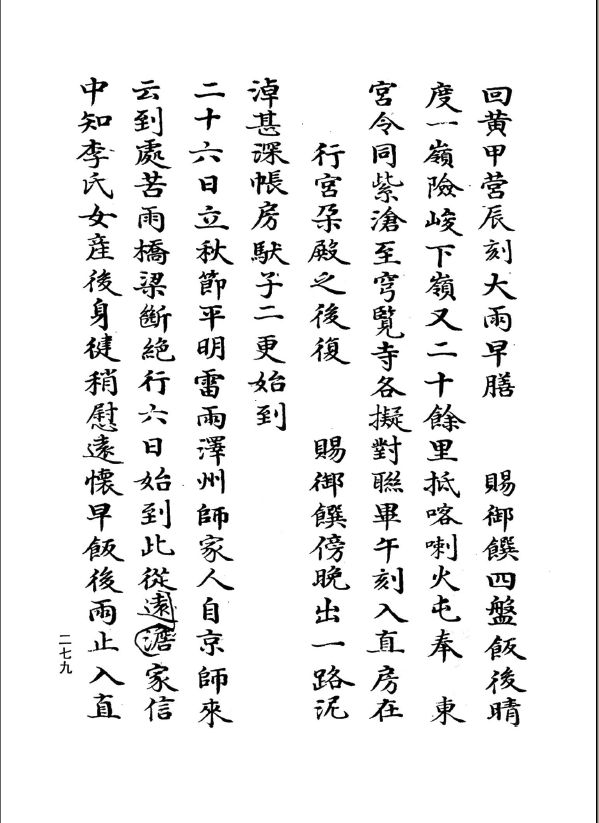 回黃甲营辰刻大雨早膳　賜御饌四盤飯後晴
度一嶺險峻下嶺又二十餘里抵喀喇火屯奉　東
宮令同紫滄至穹覽寺各擬對聮畢午刻入直房在
行宮朶殿之後復　賜御饌傍晚出一路泥
淖甚深帳房馱子二更始到
二十六日立秋節平明雷雨澤州師家人自京師來
云到處苦雨橋梁斷絕行六日始到此從遠澹家信
中知李氏女産後身健稍慰遠懷早飯後雨止入直
二七九